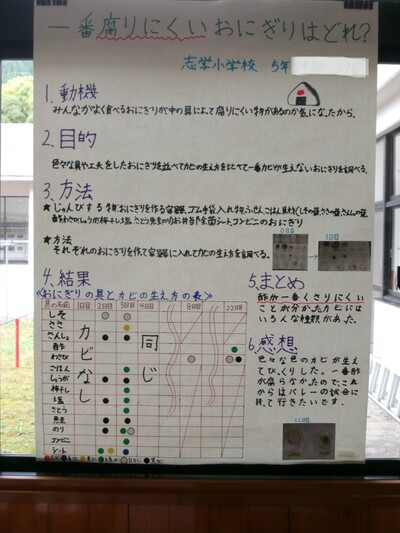 一番腐りにくいおにぎりはどれ?
志学小学校 5年
1.動機
みんながよく食べるおにぎりが中の具によって腐りにくい物があるのか気になったから。
2.目的
色々な具や工夫をしたおにぎりを並べてカビの生え方をしらべて一番カビが生えないおにぎりを調べる。
3.方法
★じゅんびする物
★方法
それぞれのおにぎりを作って容器に入れてカビの生え方を調べる。
4.結果
≪おにぎりの具とカビの生え方の表≫
具の名前 1日目 2日目 3日目 4日目 8日目 22日目
しそ
ささ
さんしょ
酢
わさび
ごはん
しょうが
梅干し
塩
さとう
のり
コンビニ
シート
カビなし
同じ
5.まとめ
酢が一番くさりにくい
ことが分かったカビには
いろんな種類があった。
6.感想
色々な色のカビが生え
てびっくりした。一番酢
が腐らなかったので、これ
からはバレーの試合に
持って行きたいです。